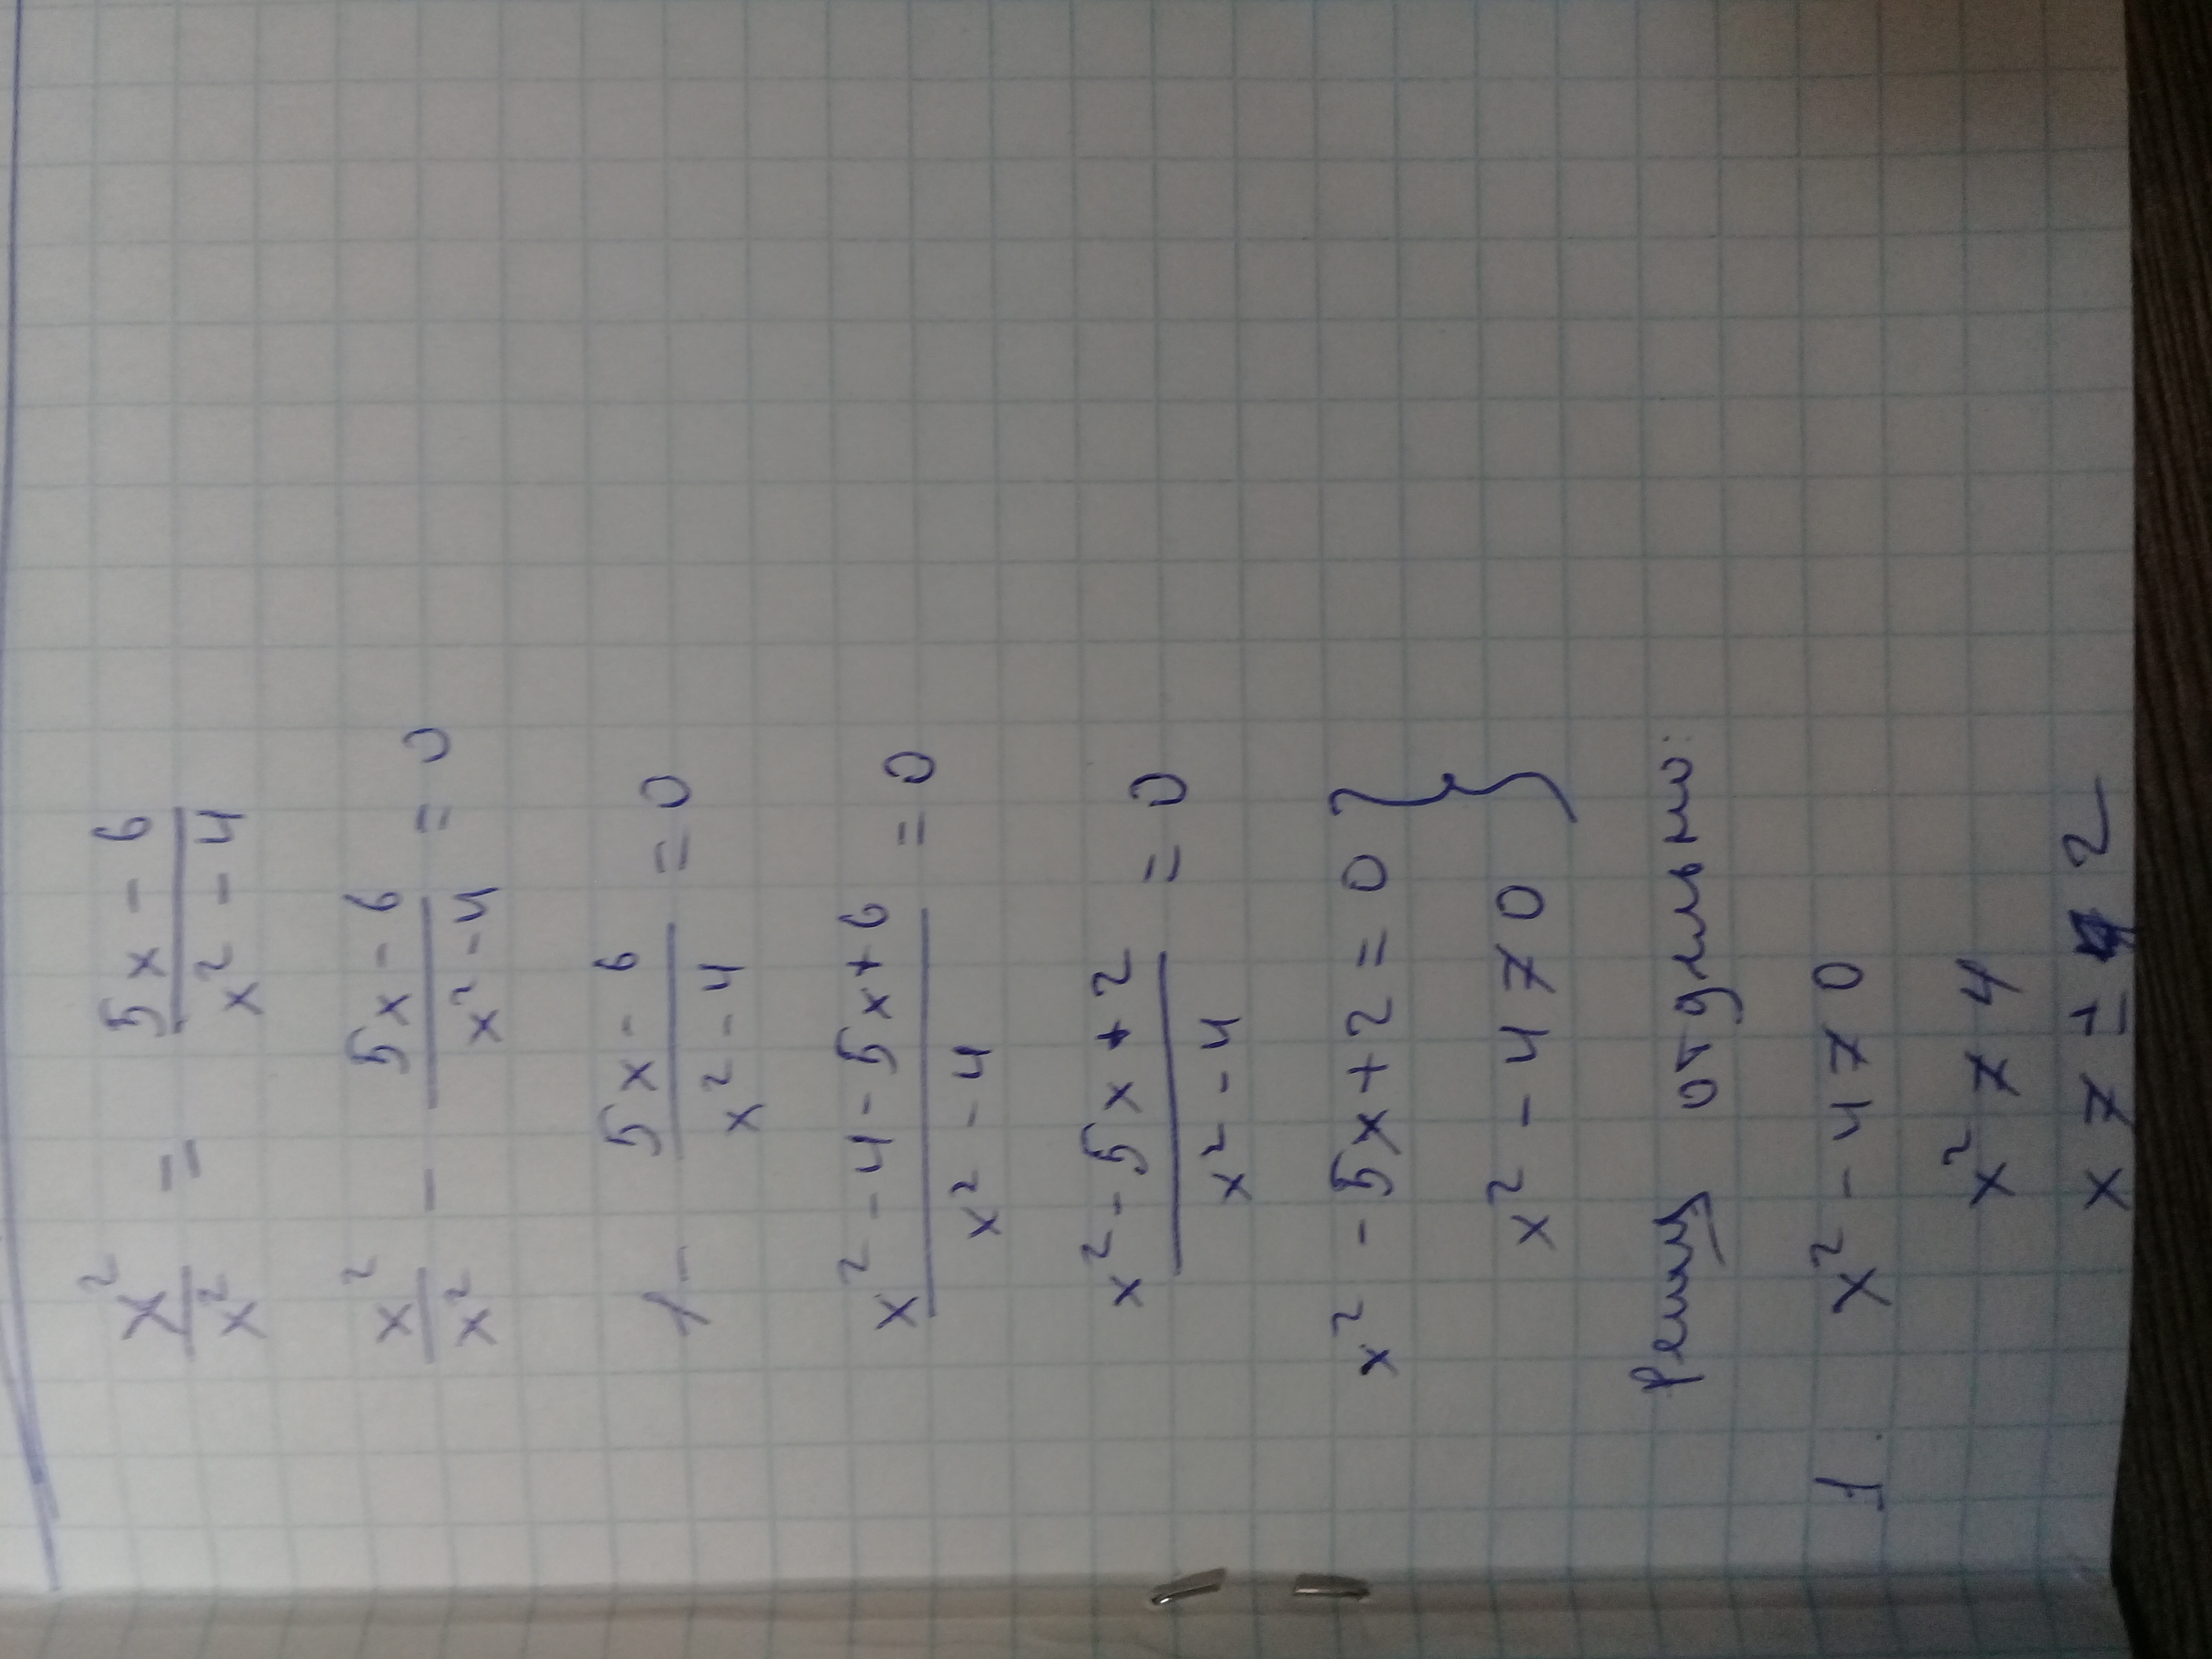 x²/x² = (5x - 6)/(x² - 4)
x²/x² - (5x - 6)/(x² - 4) = 0
1 - (5x - 6)/(x² - 4) = 0
(x² - 4 - 5x + 6)/(x² - 4) = 0
(x² - 5x + 2)/(x² - 4) = 0
x² - 5x + 2 = 0 }
x² - 4 ≠ 0
Решу отдельно:
1. x² - 4 ≠ 0
x² ≠ 4
x ≠ ± 2